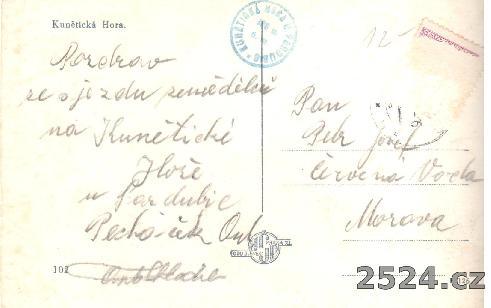 Kunětická Hora.
KUNĚTICKÁ HORA
12-
Pozdrav
ze sjezdu zemědělců
na Kunětické
Hoře
u Pardubic
Pecháček
102
Pan
Petr Josef
Červená Voda
Morava
2524.cz